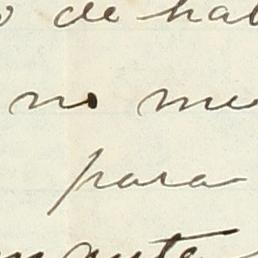 o de hab
no me
para
mante